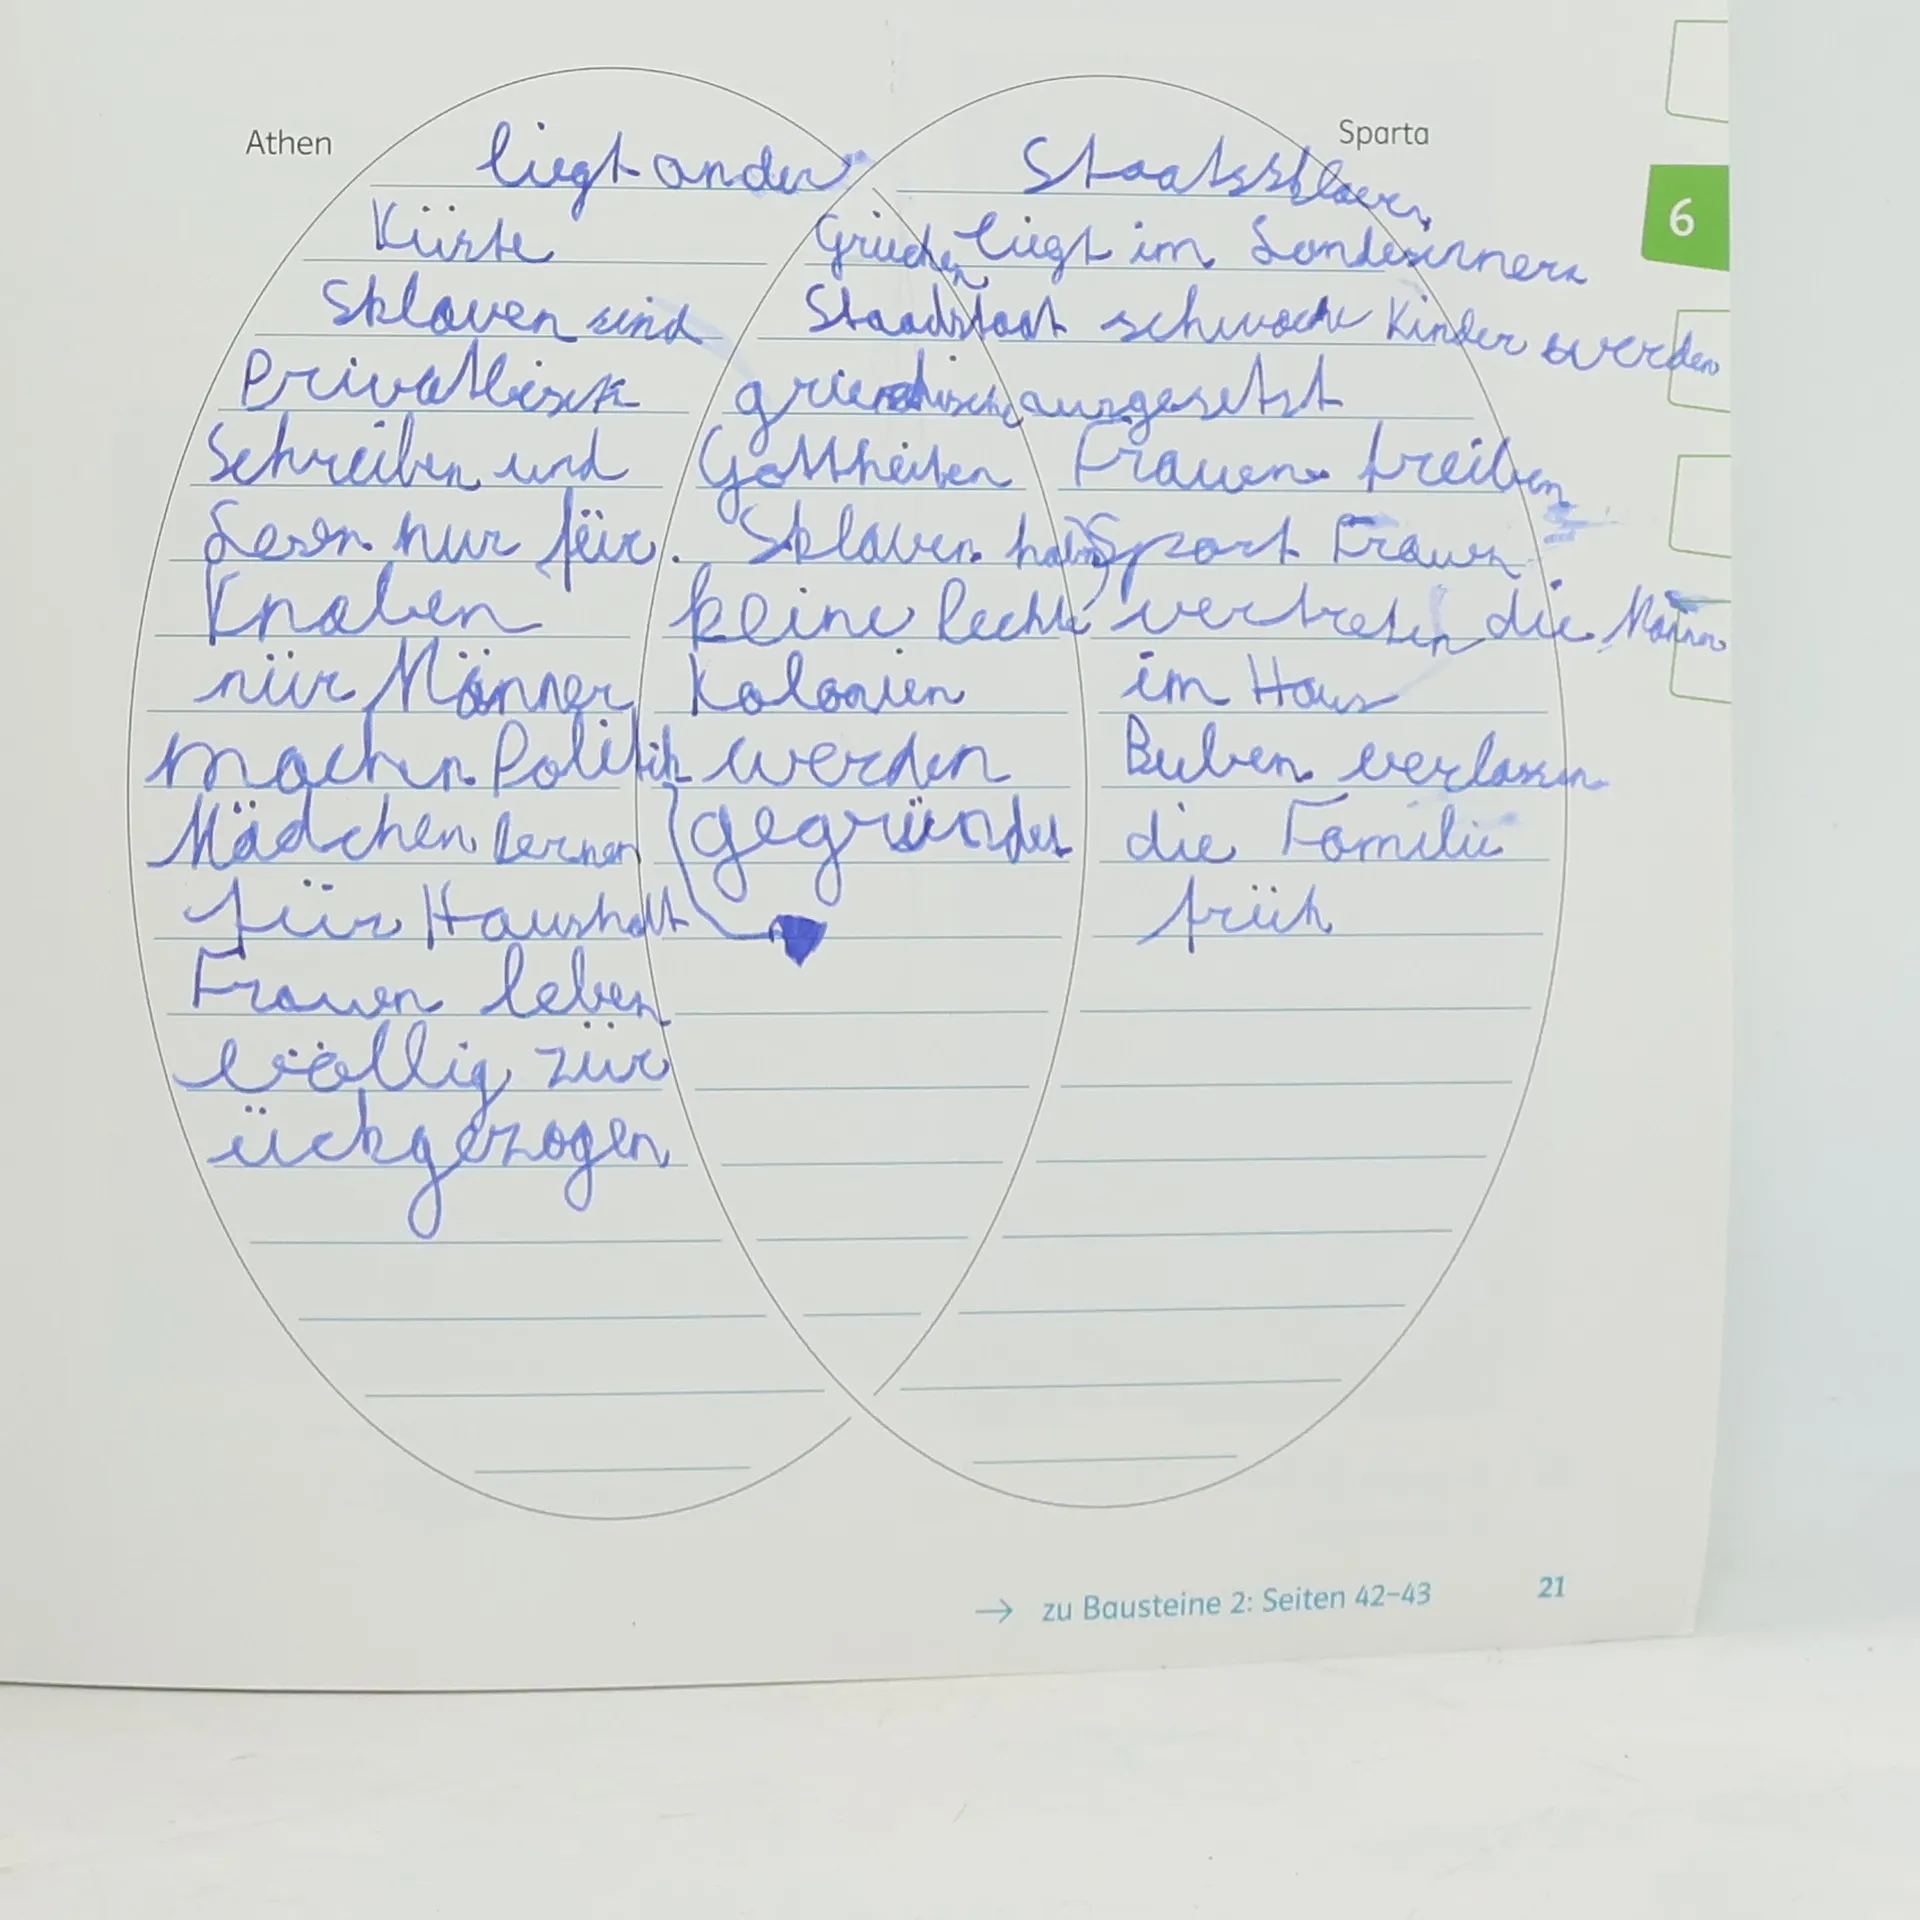 Athen
liegt an der
Küste
Sklaven sind
Privatbesitz
Schreiben und
Lesen nur für
Knaben
nür Männer
machen Politik
Mädchen lernen
für Haushalt
Frauen leben
völlig zür
ückgezogen
Griechen
Staadstaat
griechische
Gottheiten
Sklaven haben
keine Rechte
Kolonien
werden
gegründet
Sparta
Staatssklaven
liegt im Landesinnern
schwache Kinder werden
ausgesetzt
Frauen treiben
Sport Frauen
vertreten die Männer
im Haus
Buben verlassen
die Familie
früh
6
→ zu Bausteine 2: Seiten 42–43
21